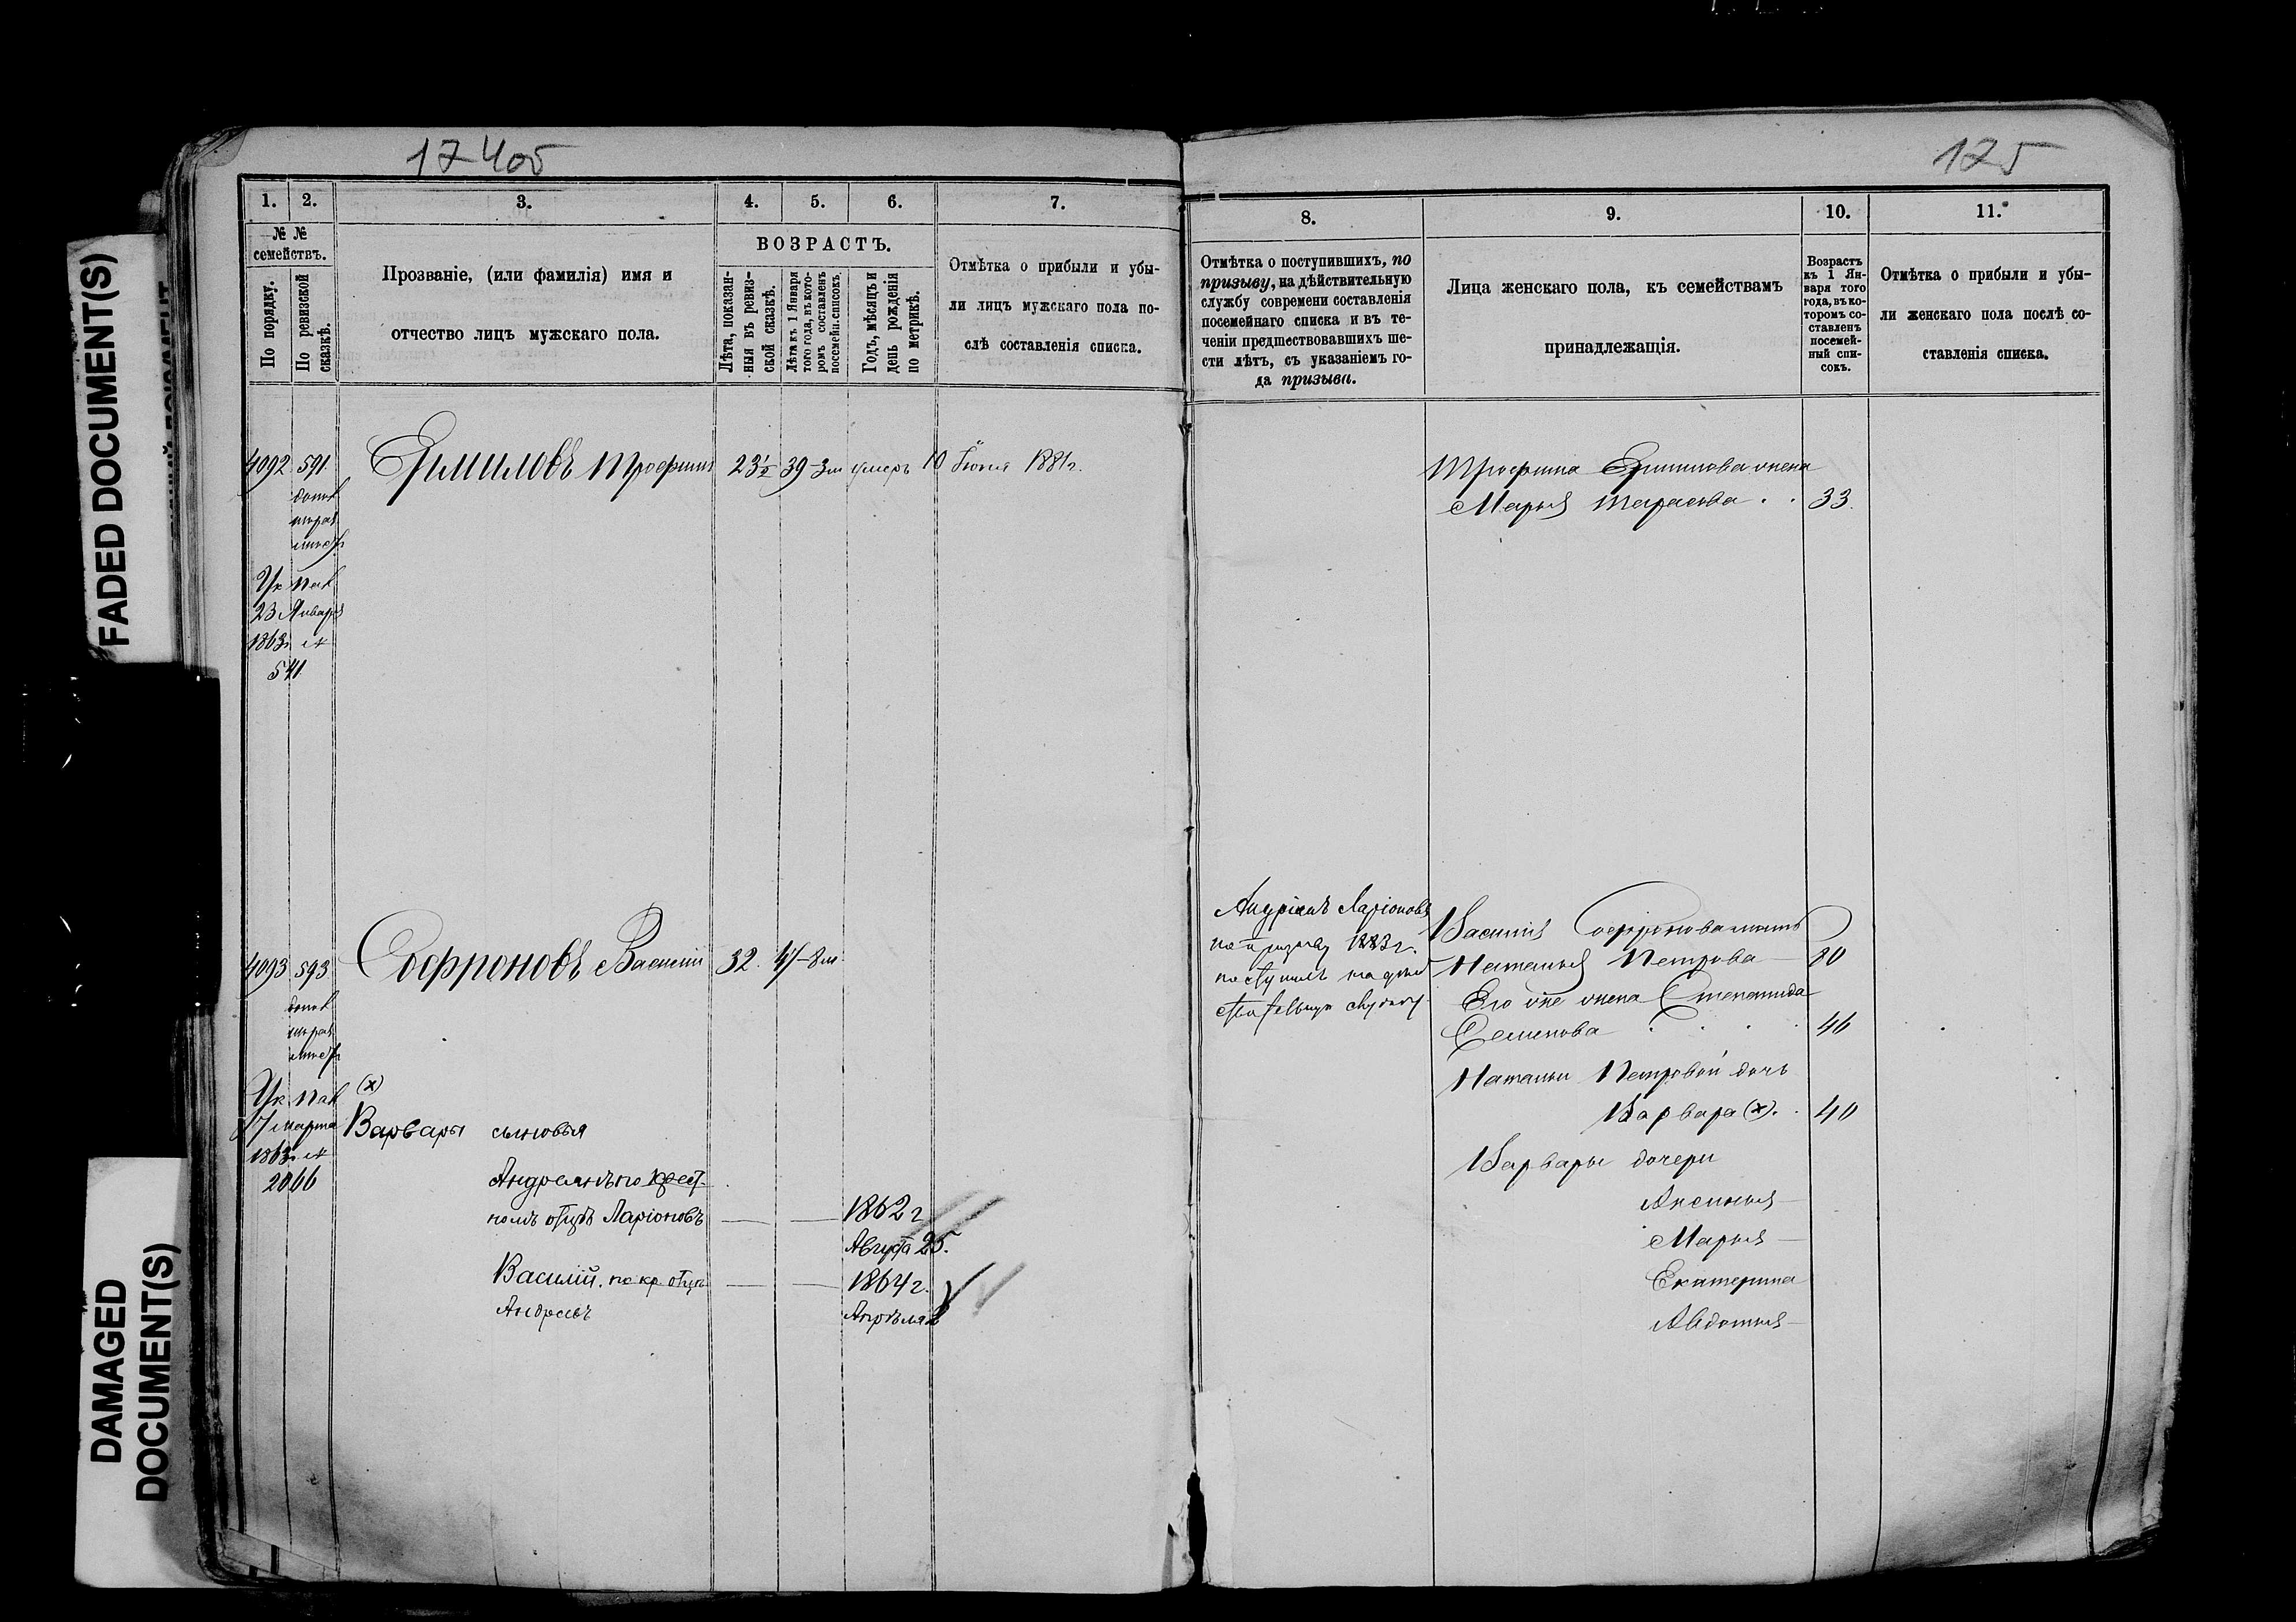 17405
125
FADED DOCUMENT(S)
DAMAGED
DOCUMENT(S)
1.
2.
3.
4.
5.
6.
7.
№ №
семействъ.
По порядку.
По ревизской
сказкѣ.
Прозваніе, (или фамилія) имя и
отчество лицъ мужскаго пола.
ВОЗРАСТЪ.
Лѣта, показан-
ныя въ ревиз-
ской сказкѣ.
Лѣта къ 1 Января
того года, въ кото-
ромъ составленъ
посемейн. списокъ.
Годъ, мѣсяцъ и
день рожденія
по метрикѣ.
Отмѣтка о прибыли и убы-
ли лицъ мужскаго пола по-
слѣ составленія списка.
4092 591 Ермиловъ Трофимъ 23½ 39-3м умеръ 10 Іюня 1881г.
допол
Ук Пал
23 Января
1863г №
541
4093 593 Софроновъ Василій 32. 47-8м
допол
Ук Пал
17 марта
1863г №
2066
(х)
Варвары сыновья
Андреянъ по крест-
номъ отцѣ Ларіоновъ 1862г
Августа 25.
Василій. по кр. отцѣ 1864г.
Андреевъ Апрѣля
8.
9.
10.
11.
Отмѣтка о поступившихъ, по
призыву, на дѣйствительную
службу современи составленія
посемейнаго списка и въ те-
ченіи предшествовавшихъ ше-
сти лѣтъ, съ указаніемъ го-
да призыва.
Лица женскаго пола, къ семействамъ
принадлежащія.
Возрастъ
къ 1 Ян-
варя того
года, въ ко-
торомъ со-
ставленъ
посемей-
ный спи-
сокъ.
Отмѣтка о прибыли и убы-
ли женскаго пола послѣ со-
ставленія списка.
Трофима Ермилова жена
Марья Тарасова . . 33.
Андріянъ Ларіоновъ
по призыву 1883г.
поступилъ на дѣй
ствительную службу.
Василія Софронова мать
Наталья Петрова 80
Его же жена Степанида
Семенова 46
Натальи Петровой дочь
Варвара (х). . 40
Варвары дочери
Аксинья
Марья
Екатерина
Авдотья